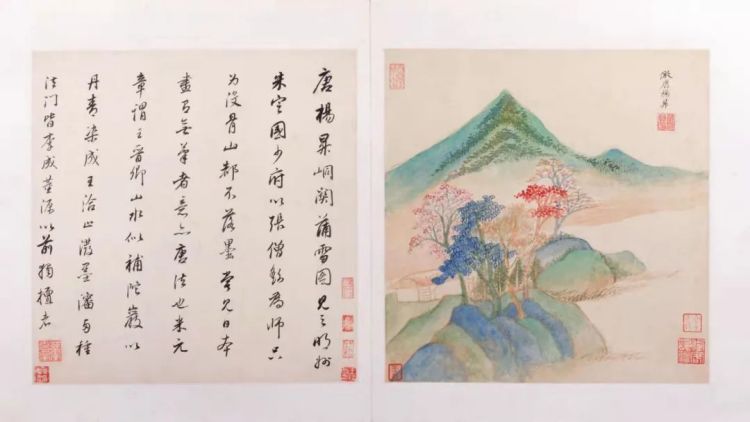 唐楊昇峒關蒲雪圖見之明州
朱定國少府以張僧繇為師只
為沒骨山都不落墨曽見日本
畫有無筆者意亦唐法也米元
章謂王晉卿山水似補陀巖以
丹青染成王洽以潑墨瀋兩種
法門皆李成董源以前獨擅者
倣唐楊昇